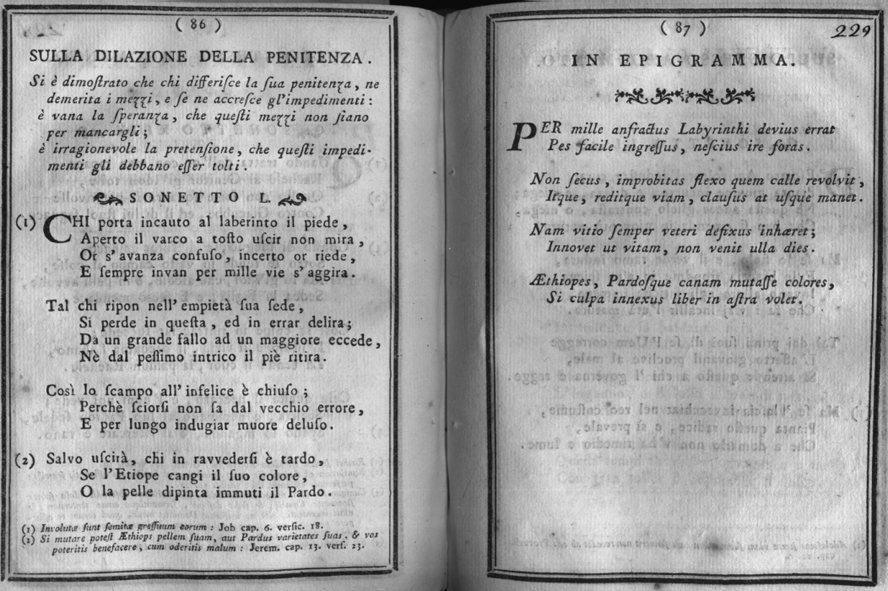 ( 86 )
SULLA DILAZIONE DELLA PENITENZA.
Si è dimoſtrato che chi differiſce la ſua penitenza, ne
demerita i mezzi, e ſe ne accreſce gl'impedimenti:
è vana la ſperanza, che queſti mezzi non ſiano
per mancargli;
è irragionevole la pretenſione, che queſti impedi-
menti gli debbano eſſer tolti.
SONETTO L.
(1) CHI porta incauto al laberinto il piede,
Aperto il varco a toſto uſcir non mira,
Or s'avanza confuſo, incerto or riede,
E ſempre invan per mille vie s'aggira.
Tal chi ripon nell'empietà ſua ſede,
Si perde in queſta, ed in errar delira;
Da un grande fallo ad un maggiore eccede,
Nè dal peſſimo intrico il piè ritira.
Così lo ſcampo all'infelice è chiuſo;
Perchè ſciorſi non ſa dal vecchio errore,
E per lungo indugiar muore deluſo.
(2) Salvo uſcirà, chi in ravvederſi è tardo,
Se l'Etiope cangi il ſuo colore,
O la pelle dipinta immuti il Pardo.
(1) Involutæ ſunt ſemitæ greſſuum eorum: Job cap. 6. verſic. 18.
(2) Si mutare poteſt Æthiops pellem ſuam, aut Pardus varietates ſuas, & vos
poteritis benefacere, cum oderitis malum: Jerem. cap. 13. verſ. 23.
( 87 )
229
IN EPIGRAMMA.
PER mille anfractus Labyrinthi devius errat
Pes facile ingreſſus, neſcius ire foras.
Non ſecus, improbitas flexo quem calle revolvit,
Itque, reditque viam, clauſus at uſque manet.
Nam vitio ſemper veteri defixus inhæret;
Innovet ut vitam, non venit ulla dies.
Æthiopes, Pardoſque canam mutaſſe colores,
Si culpa innexus liber in aſtra volet.